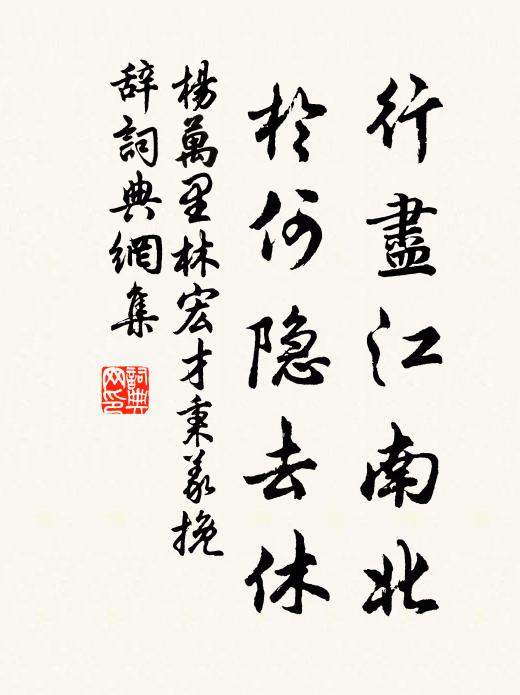 行盡江南北
於何隐去休
楊萬里林宏才秉義挽
辭詞典網集
詞典
网印